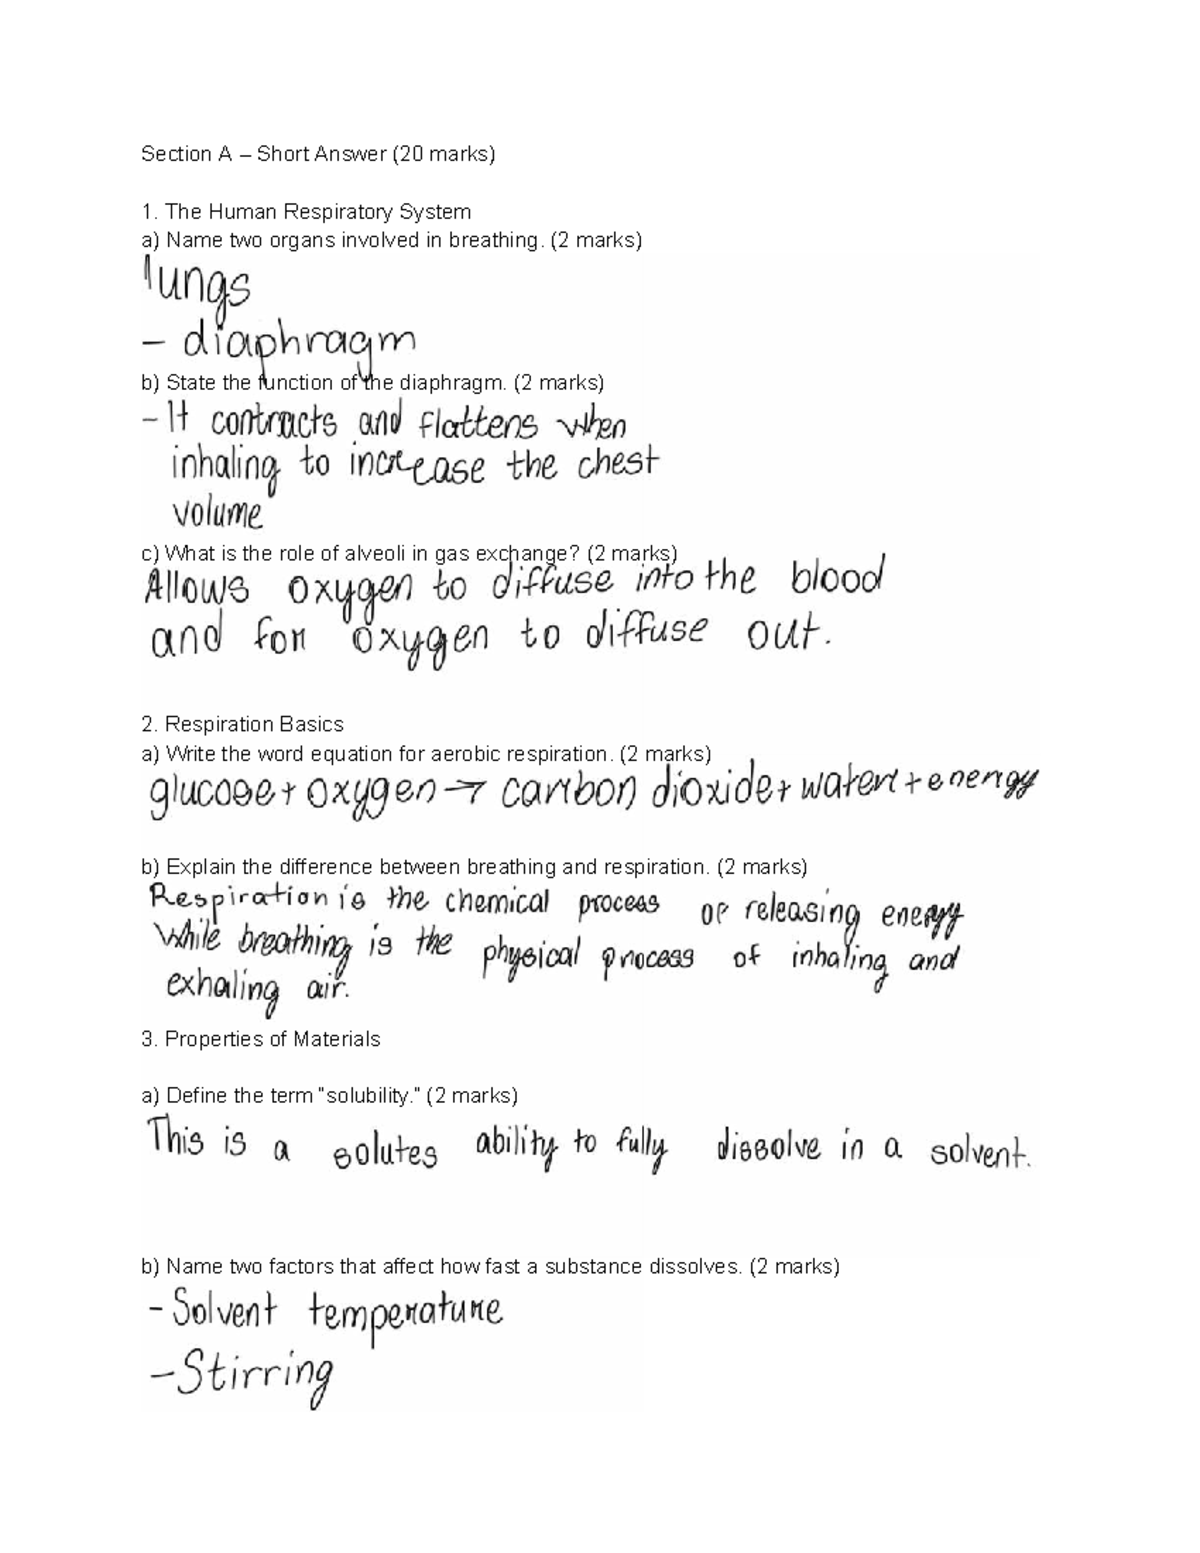 Section A – Short Answer (20 marks)
1. The Human Respiratory System
a) Name two organs involved in breathing. (2 marks)
lungs
- diaphragm
b) State the function of the diaphragm. (2 marks)
- It contracts and flattens when
inhaling to increase the chest
volume
c) What is the role of alveoli in gas exchange? (2 marks)
Allows oxygen to diffuse into the blood
and for oxygen to diffuse out.
2. Respiration Basics
a) Write the word equation for aerobic respiration. (2 marks)
glucose + oxygen → carbon dioxide + water + energy
b) Explain the difference between breathing and respiration. (2 marks)
Respiration is the chemical process of releasing energy
While breathing is the physical process of inhaling and
exhaling air.
3. Properties of Materials
a) Define the term "solubility." (2 marks)
This is a solutes ability to fully dissolve in a solvent.
b) Name two factors that affect how fast a substance dissolves. (2 marks)
- Solvent temperature
- Stirring